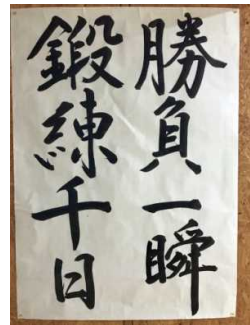 勝負一瞬
鍛練千日